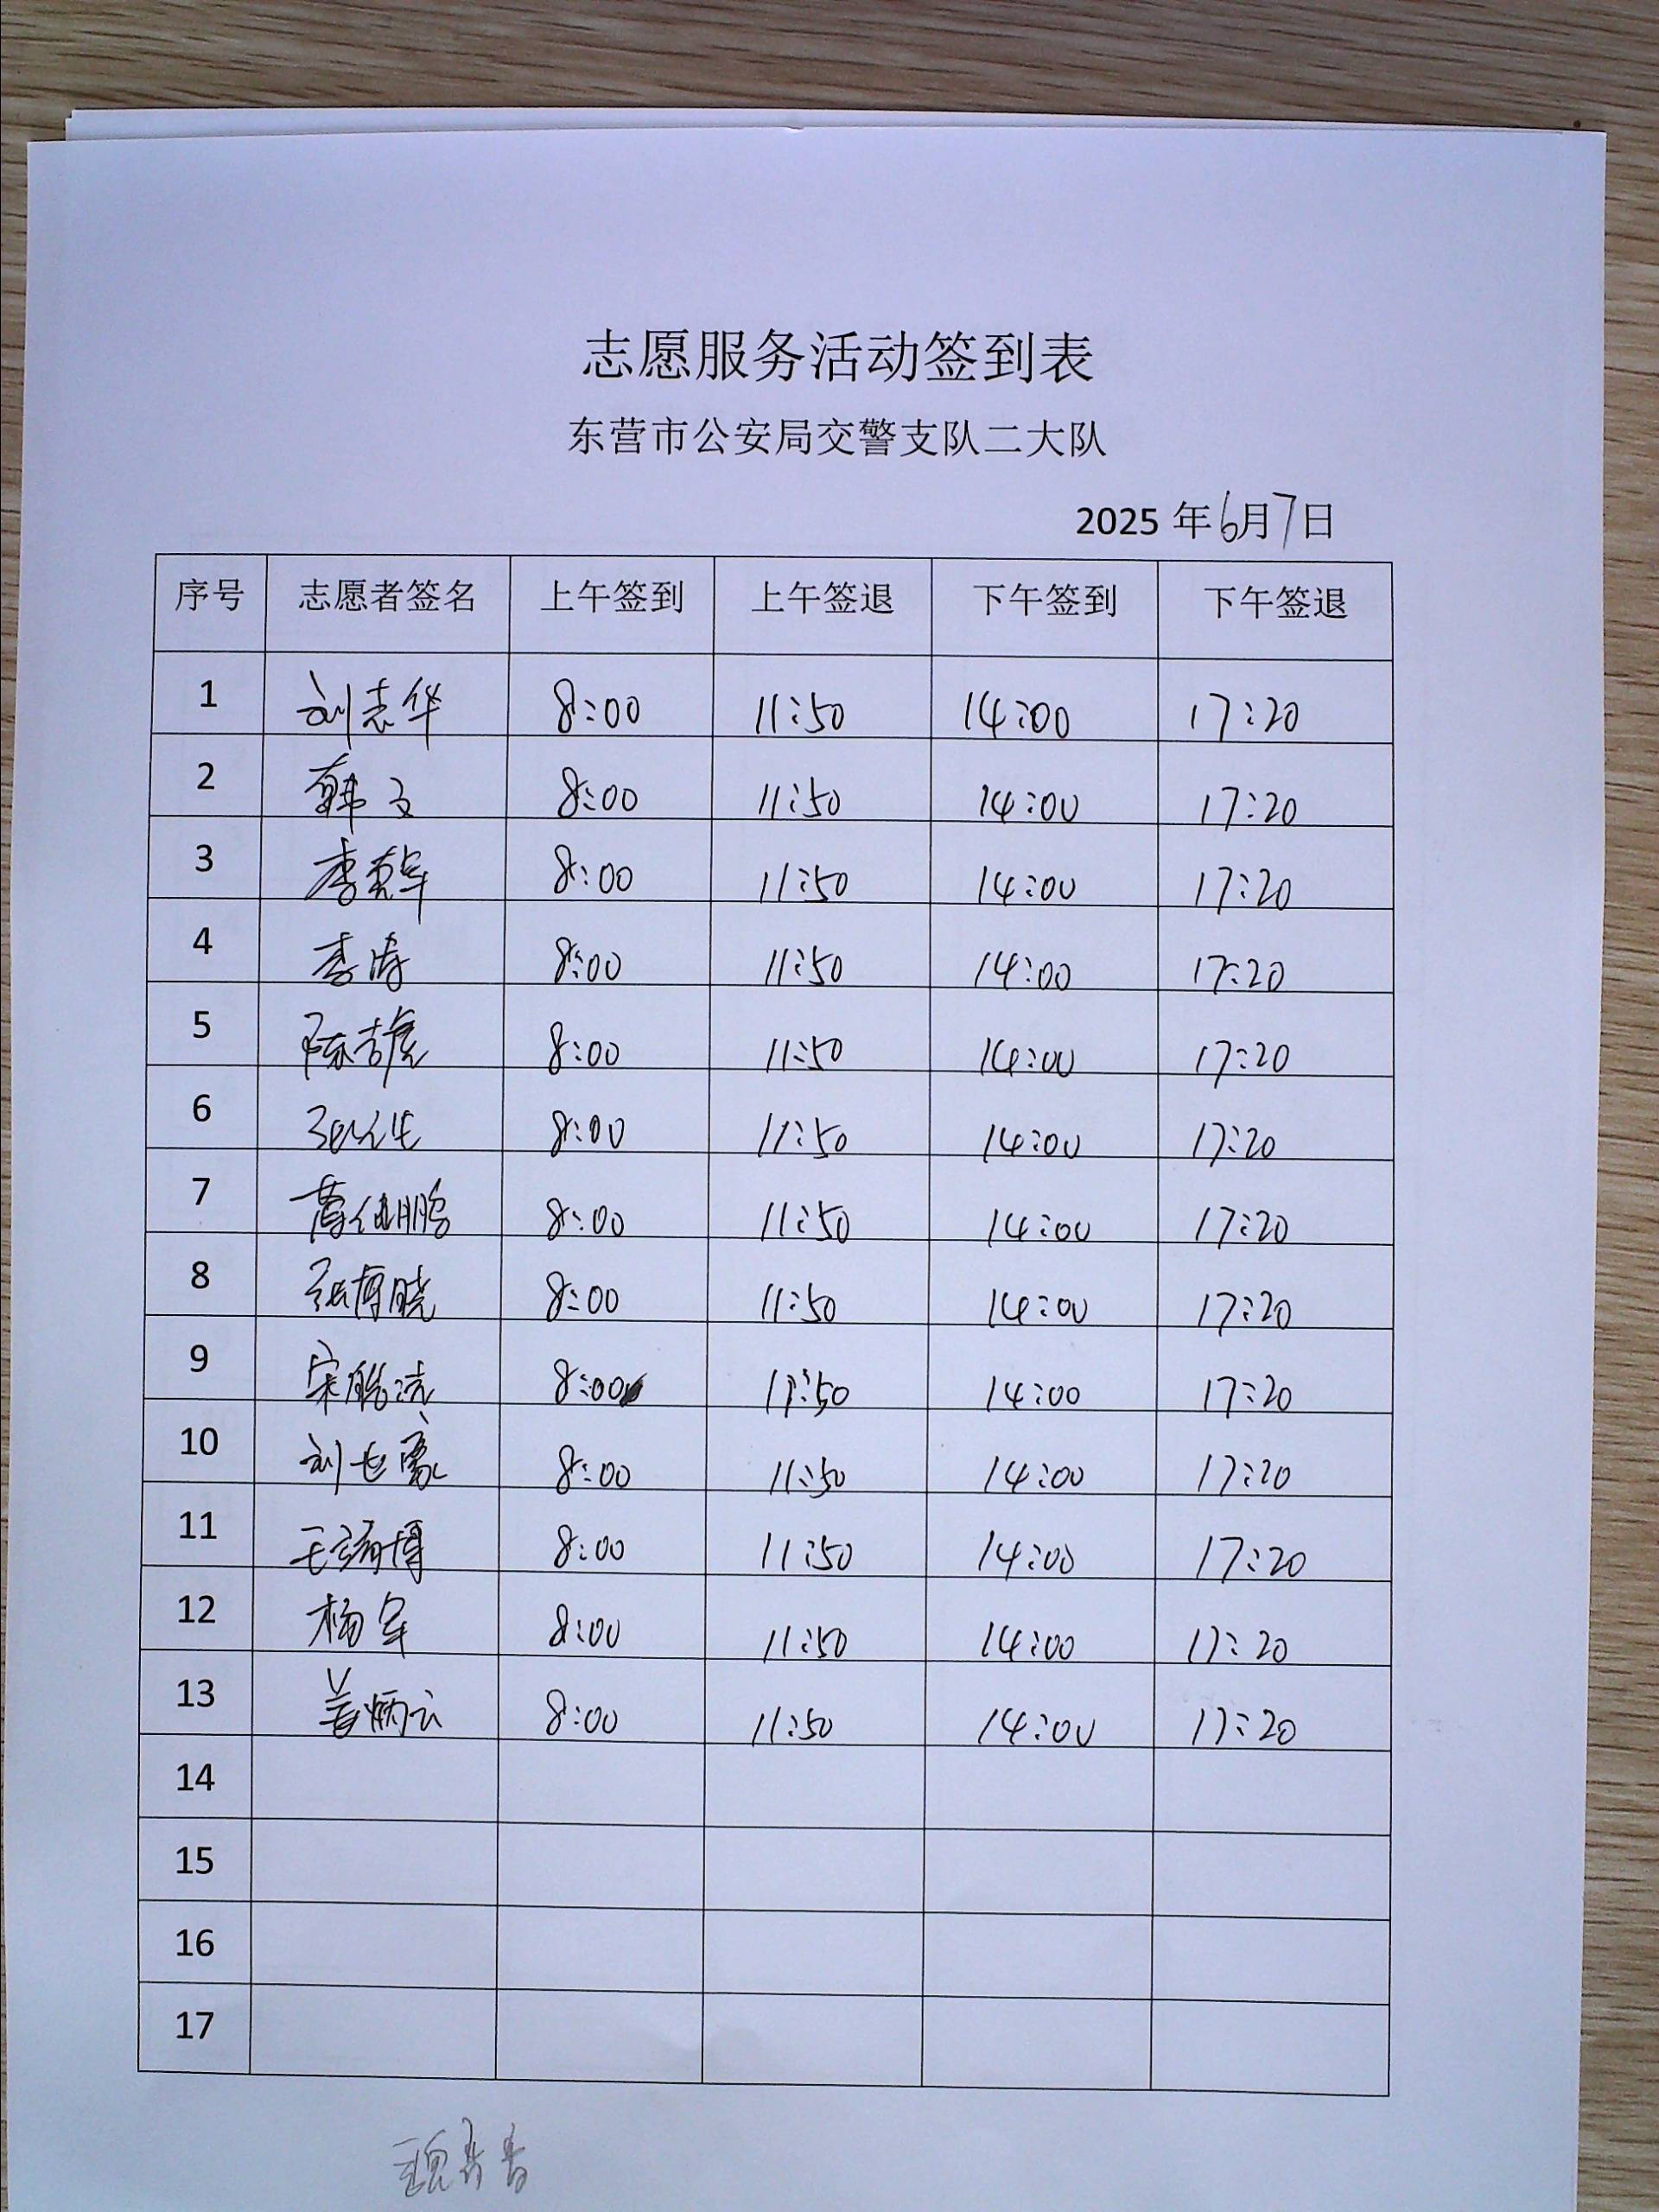 志愿服务活动签到表
东营市公安局交警支队二大队
2025 年6月7日
序号 志愿者签名 上午签到 上午签退 下午签到 下午签退
1 刘志华 8:00 11:50 14:00 17:20
2 韩文 8:00 11:50 14:00 17:20
3 李 8:00 11:50 14:00 17:20
4 李涛 8:00 11:50 14:00 17:20
5 陈吉虎 8:00 11:50 14:00 17:20
6 8:00 11:50 14:00 17:20
7 8:00 11:50 14:00 17:20
8 张博晓 8:00 11:50 14:00 17:20
9 宋 8:00 11:50 14:00 17:20
10 刘 8:00 11:50 14:00 17:20
11 王 博 8:00 11:50 14:00 17:20
12 杨军 8:00 11:50 14:00 17:20
13 姜炳 8:00 11:50 14:00 17:20
14
15
16
17